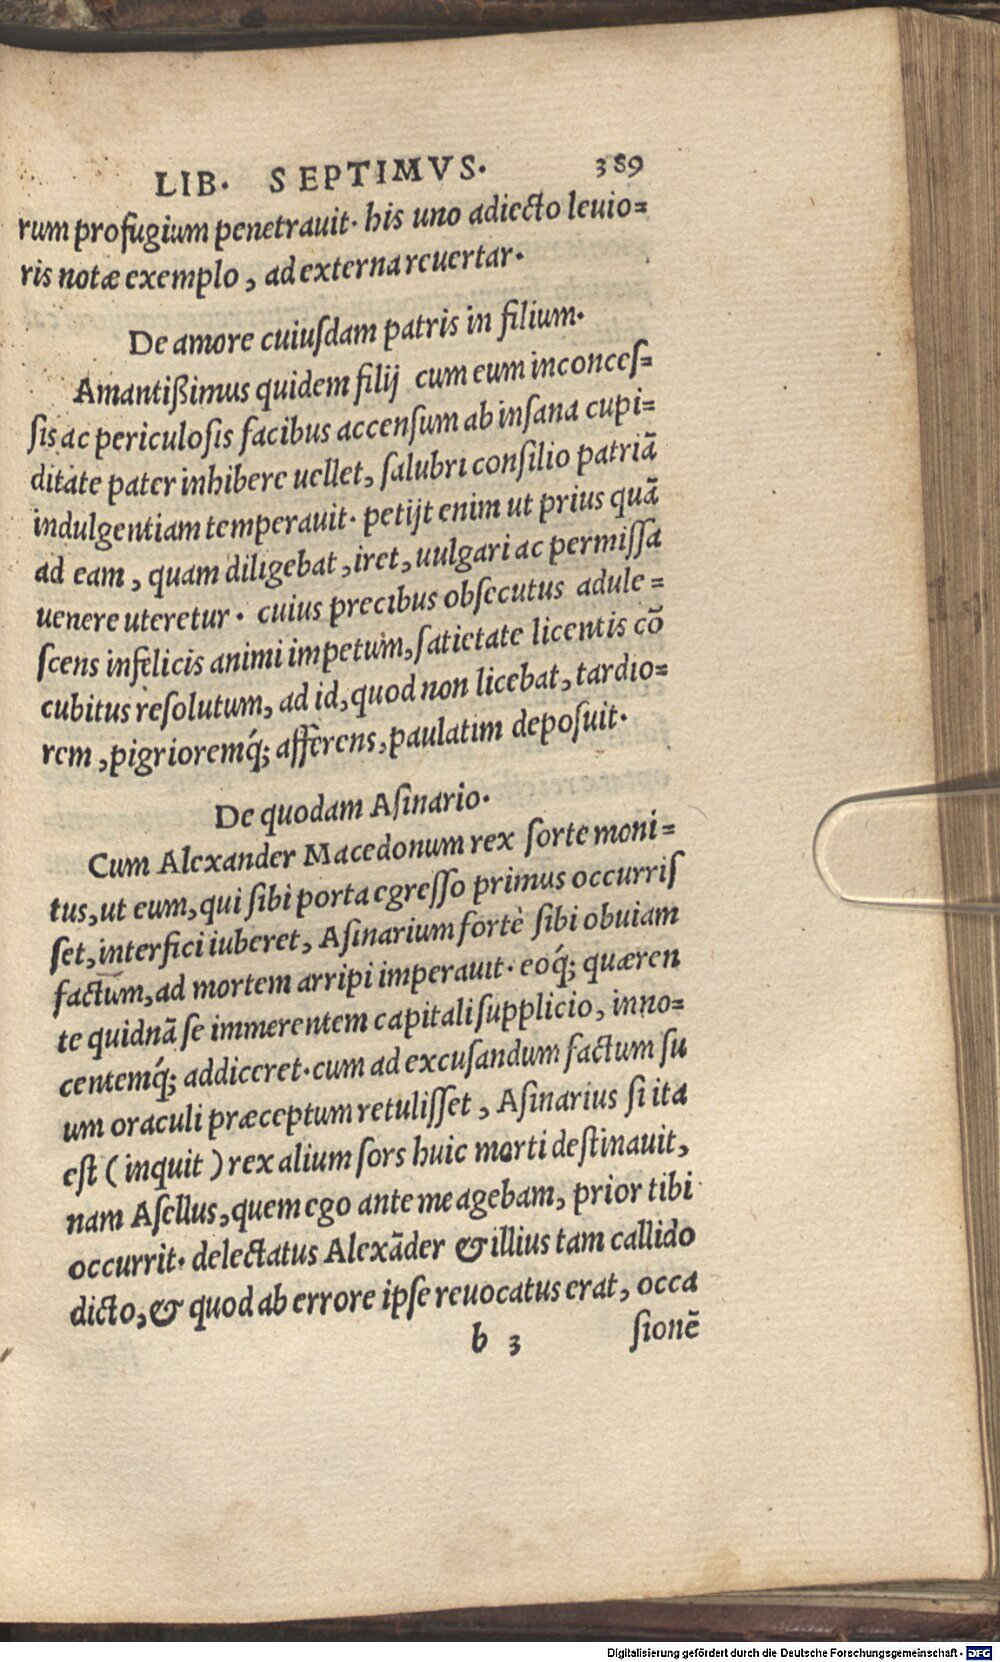 LIB. SEPTIMVS. 389
rum profugium penetrauit. his uno adiecto leuio=
ris notæ exemplo, ad externa reuertar.
De amore cuiusdam patris in filium.
Amantißimus quidem filij cum eum inconceſ=
ſis ac periculoſis facibus accenſum ab inſana cupi=
ditate pater inhibere uellet, ſalubri conſilio patriã
indulgentiam temperauit. petijt enim ut prius quã
ad eam, quam diligebat, iret, uulgari ac permiſſa
uenere uteretur. cuius precibus obſecutus adule=
ſcens infelicis animi impetum, ſatietate licentis cõ
cubitus reſolutum, ad id, quod non licebat, tardio=
rem, pigrioremq́; afferens, paulatim depoſuit.
De quodam Aſinario.
Cum Alexander Macedonum rex ſorte moni=
tus, ut eum, qui ſibi porta egreſſo primus occurriſ
ſet, interfici iuberet, Aſinarium fortè ſibi obuiam
factum, ad mortem arripi imperauit. eoq́; quæren
te quidnã ſe immerentem capitali ſupplicio, inno=
centemq́; addiceret. cum ad excuſandum factum ſu
um oraculi præceptum retuliſſet, Aſinarius ſi ita
eſt (inquit) rex alium ſors huic morti deſtinauit,
nam Aſellus, quem ego ante me agebam, prior tibi
occurrit. delectatus Alexãder & illius tam callido
dicto, & quod ab errore ipſe reuocatus erat, occa
b 3 ſionẽ
Digitalisierung gefördert durch die Deutsche Forschungsgemeinschaft - DFG